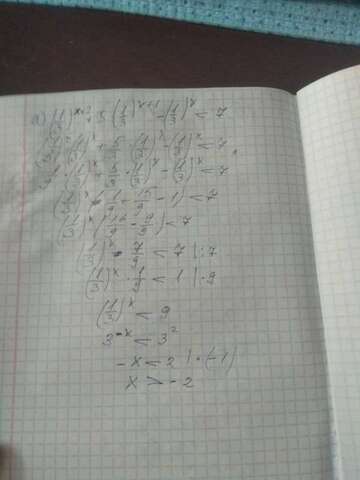 a) (1/3)^x+2 + 5(1/3)^x+1 - (1/3)^x < 7
(1/3)^2 · (1/3)^x + 5/3 · (1/3)^x - (1/3)^x < 7
1/9 · (1/3)^x + 5/3 · (1/3)^x - (1/3)^x < 7
(1/3)^x · (1/9 + 15/9 - 1) < 7
(1/3)^x (16/9 - 9/9) < 7
(1/3)^x · 7/9 < 7 | :7
(1/3)^x · 1/9 < 1 | ·9
(1/3)^x < 9
3^-x < 3^2
-x < 2 | ·(-1)
x > -2